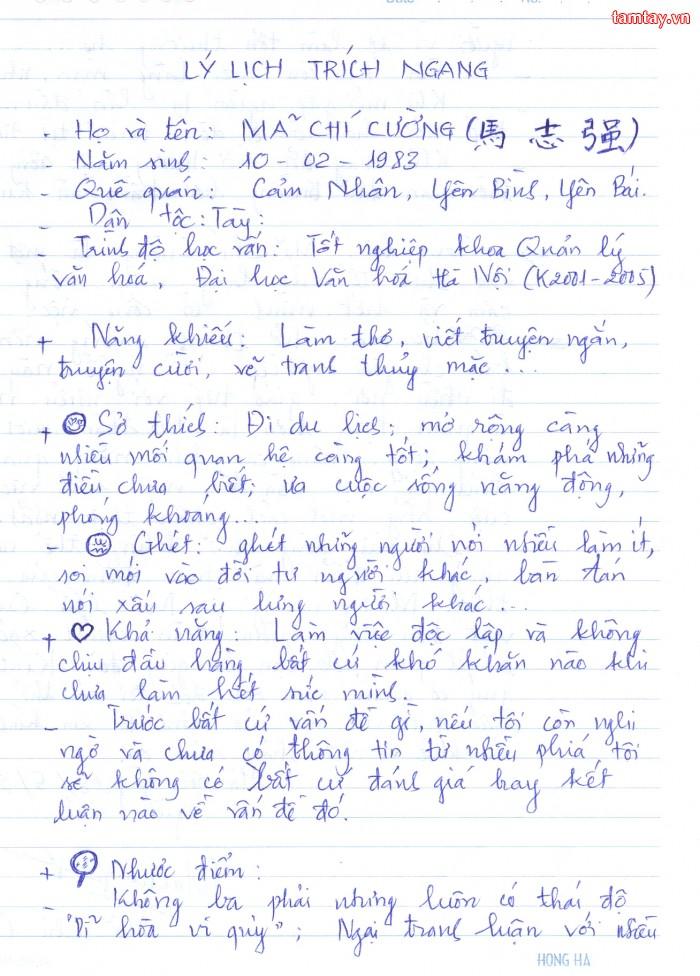 tamtay.vn
LÝ LỊCH TRÍCH NGANG
- Họ và tên: MÃ CHÍ CƯỜNG (馬 志 强)
- Năm sinh: 10 - 02 - 1983
- Quê quán: Cảm Nhân, Yên Bình, Yên Bái.
- Dân tộc: Tày:
- Trình độ học vấn: Tốt nghiệp khoa Quản lý
văn hoá, Đại học Văn hoá Hà Nội (K2001-2005)
+ Năng khiếu: Làm thơ, viết truyện ngắn,
truyện cười, vẽ tranh thủy mặc ...
+ Sở thích: Đi du lịch; mở rộng càng
nhiều mối quan hệ càng tốt; khám phá những
điều chưa biết; ưa cuộc sống năng động,
phóng khoáng...
- Ghét: ghét những người nói nhiều làm ít,
soi mói vào đời tư người khác, bàn tán
nói xấu sau lưng người khác ...
+ Khả năng: Làm việc độc lập và không
chịu đầu hàng bất cứ khó khăn nào khi
chưa làm hết sức mình.
- Trước bất cứ vấn đề gì, nếu tôi còn nghi
ngờ và chưa có thông tin từ nhiều phía, tôi
sẽ không có bất cứ đánh giá hay kết
luận nào về vấn đề đó.
+ Nhược điểm:
- Không ba phải nhưng luôn có thái độ
"Dĩ hòa vi qúy"; Ngại tranh luận với nhiều
HONG HA